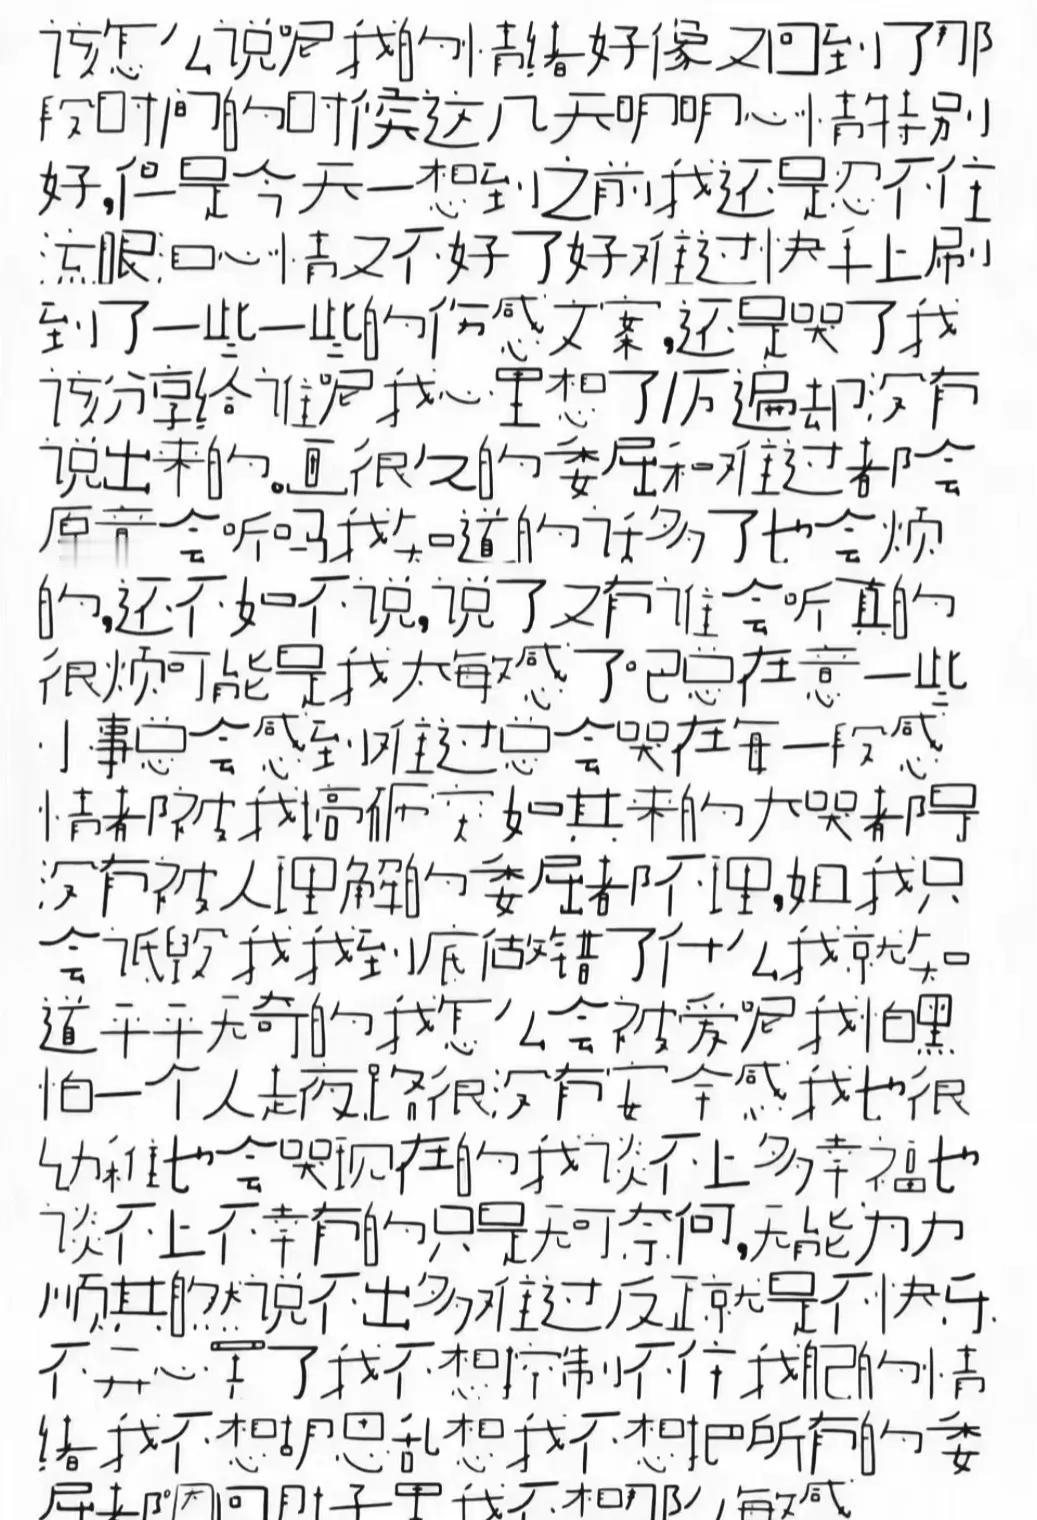 该怎么说呢我的情绪好像又回到了那
段时间的时候这几天明明心情特别
好,但是今天一想到之前我还是忍不住
流眼泪心情又不好了好难过快手上刷
到了一些一些的伤感文案,还是哭了我
该分享给谁呢我心里想了万遍却没有
说出来的。画很久的委屈和难过都会
原意会听吗我知道的话多了也会烦
的,还不如不说,说了又有谁会听真的
很烦可能是我太敏感了吧总在意一些
小事总会感到难过总会哭在每一段感
情都被我搞砸突如其来的大哭都是
没有被人理解的委屈都不理,姐我只
会诋毁我我到底做错了什么我就知
道平平无奇的我怎么会被爱呢我怕黑
怕一个人走夜路很没有安全感我也很
幼稚也会哭现在的我谈不上多幸福也
谈不上不幸有的只是无可奈何,无能为力
顺其自然说不出多难过反正就是不快乐.
不开心罢了我不想控制不住我的情
绪我不想胡思乱想我不想把所有的委
屈都 回肚子里我不想那么敏感